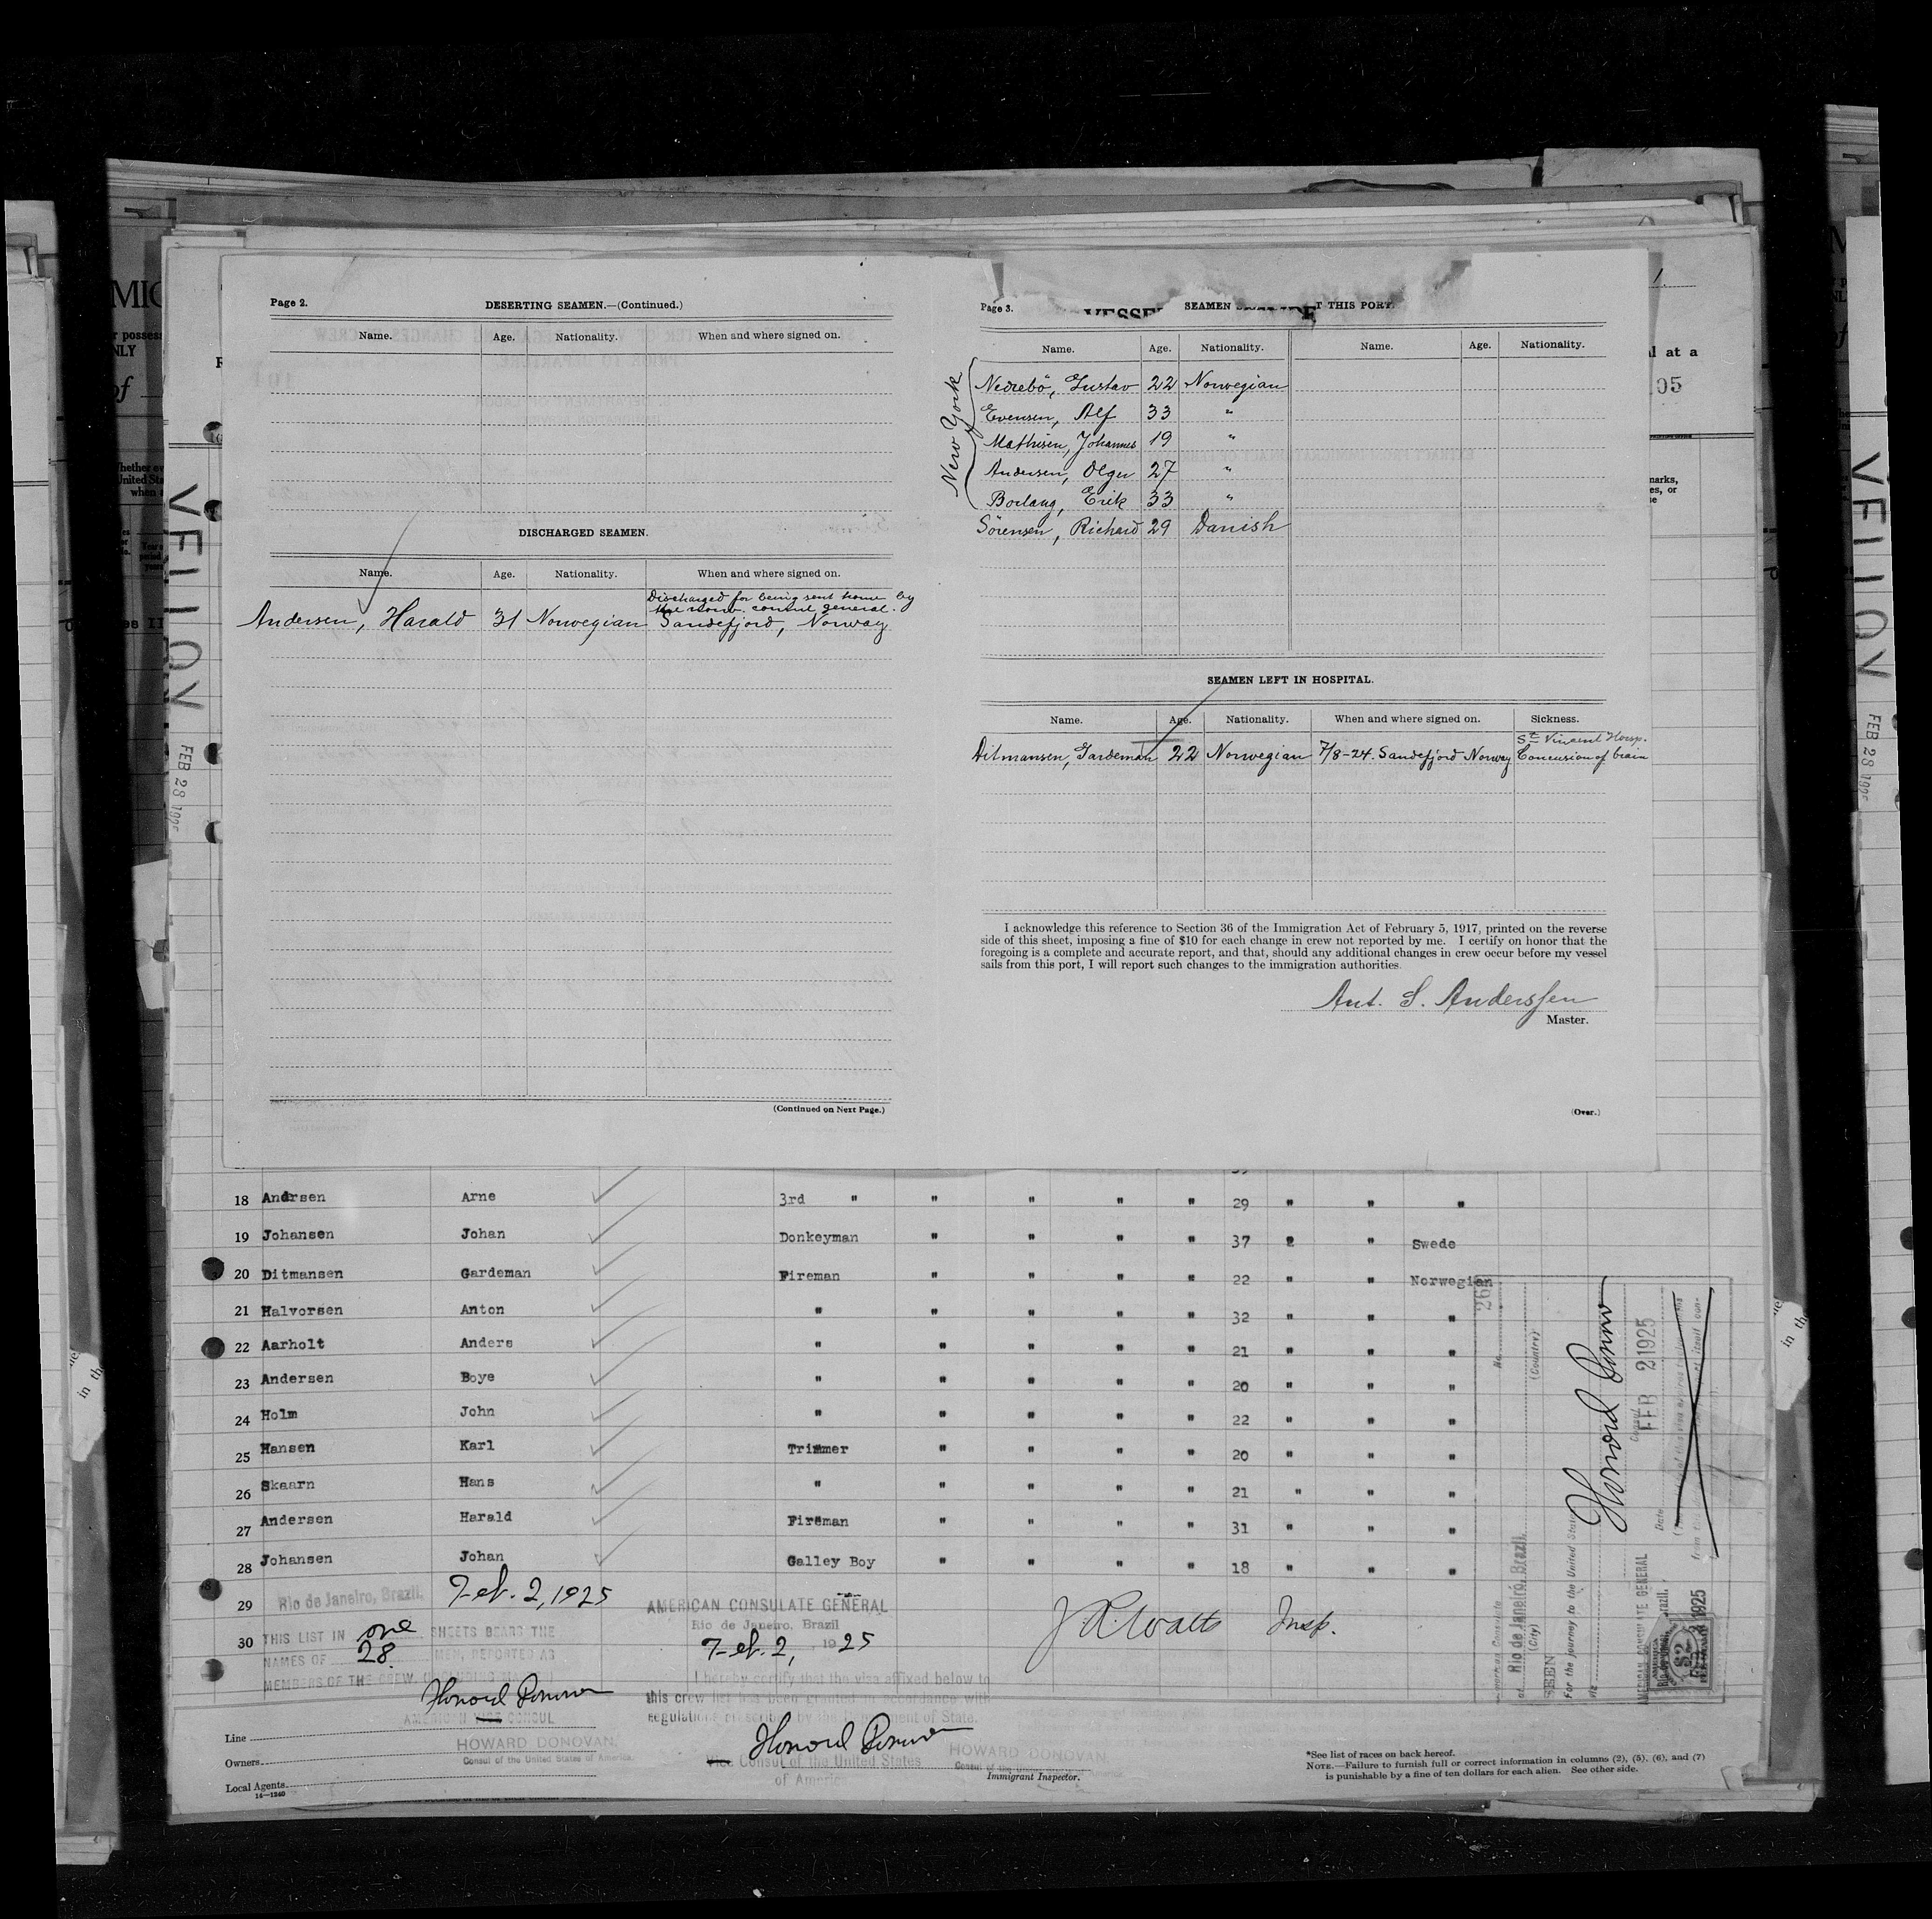 Page 2.
DESERTING SEAMEN.—(Continued.)
Name. Age. Nationality. When and where signed on.
DISCHARGED SEAMEN.
Name. Age. Nationality. When and where signed on.
Discharged for being sent home by
the norw. consul general.
Andersen, Harald 31 Norwegian Sandefjord, Norway
(Continued on Next Page.)
Page 3.
SEAMEN T THIS PORT.
Name. Age. Nationality. Name. Age. Nationality.
New York
Nedrebö, Gustav 22 Norwegian
Evensen, Alf 33 "
Mathisen, Johannes 19 "
Andersen, Olga 27 "
Borlaug, Erik 33 "
Sörensen, Richard 29 Danish
SEAMEN LEFT IN HOSPITAL.
Name. Age. Nationality. When and where signed on. Sickness.
St Vincent Hosp.
Ditmansen, Gardeman 22 Norwegian 7/8-24. Sandefjord Norway Concusion of brain
I acknowledge this reference to Section 36 of the Immigration Act of February 5, 1917, printed on the reverse
side of this sheet, imposing a fine of $10 for each change in crew not reported by me. I certify on honor that the
foregoing is a complete and accurate report, and that, should any additional changes in crew occur before my vessel
sails from this port, I will report such changes to the immigration authorities.
Ant. S. Anderssen
Master.
(Over.)
18 Andrsen Arne 3rd " " " " " 29 " " "
19 Johansen Johan Donkeyman " " " " 37 " " Swede
20 Ditmansen Gardeman Fireman " " " " 22 " " Norwegian
21 Halvorsen Anton " " " " " 32 " " "
22 Aarholt Anders " " " " " 21 " " "
23 Andersen Boye " " " " " 20 " " "
24 Holm John " " " " " 22 " " "
25 Hansen Karl Trimmer " " " " 20 " " "
26 Skaarn Hans " " " " " 21 " " "
27 Andersen Harald Fireman " " " " 31 " " "
28 Johansen Johan Galley Boy " " " " 18 " " "
29 Rio de Janeiro, Brazil. Feb. 2, 1925
30 THIS LIST IN one SHEETS BEARS THE
NAMES OF 28 MEN, REPORTED AS
MEMBERS OF THE CREW
Howard Donovan
AMERICAN VICE CONSUL
HOWARD DONOVAN,
Consul of the United States of America.
AMERICAN CONSULATE GENERAL
Rio de Janeiro, Brazil
Feb. 2, 1925
I hereby certify that the visa affixed below to
this crew list has been granted in accordance with
regulations prescribed by the Department of State.
Howard Donovan
Vice Consul of the United States
of America
HOWARD DONOVAN,
Immigrant Inspector.
J. R. Watts Insp.
Line
Owners
Local Agents
14—1240
*See list of races on back hereof.
NOTE.—Failure to furnish full or correct information in columns (2), (5), (6), and (7)
is punishable by a fine of ten dollars for each alien. See other side.
No.
(Country)
Rio de Janeiro, Brazil.
(City)
SEEN
For the journey to the United States
Howard Donovan
Consul
Date FEB 2 1925
AMERICAN CONSULATE GENERAL
$2
FEB 28 192